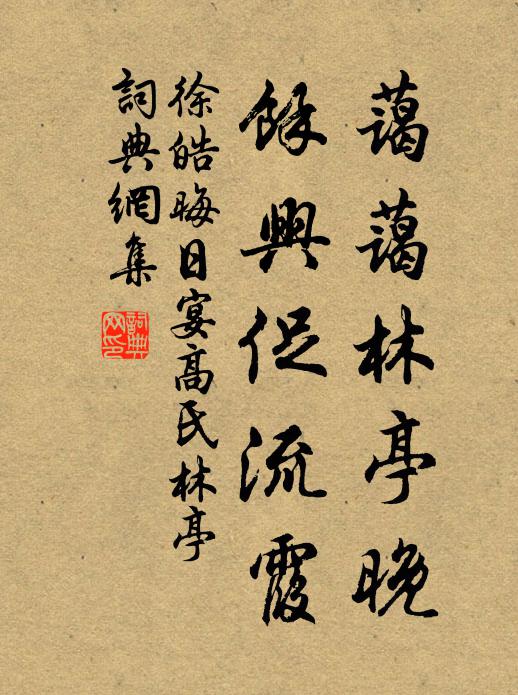 藹藹林亭晚
餘興促流霞
徐皓晦日宴高氏林亭
詞典網集
詞典網印